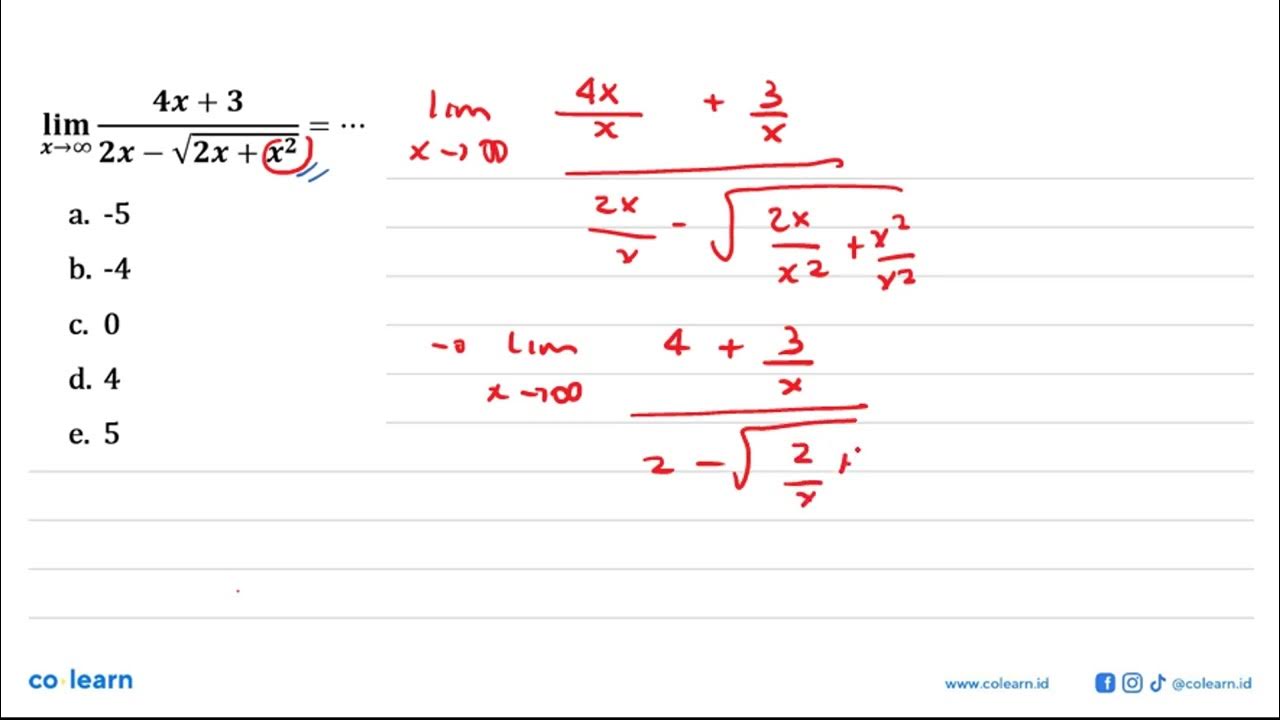 lim x→∞ (4x + 3)/(2x − √(2x + x²)) = ⋯
a. -5
b. -4
c. 0
d. 4
e. 5
lim x→∞ (4x/x + 3/x)/(2x/x − √(2x/x² + x²/x²))
→ lim x→∞ (4 + 3/x)/(2 − √(2/x
co·learn
www.colearn.id
@colearn.id